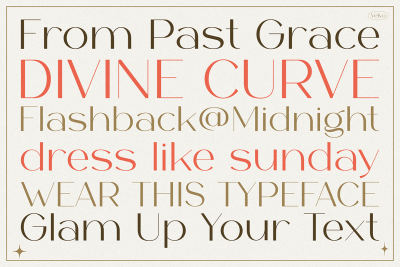 From Past Grace
DIVINE CURVE
Flashback@Midnight
dress like sunday
WEAR THIS TYPEFACE
Glam Up Your Text